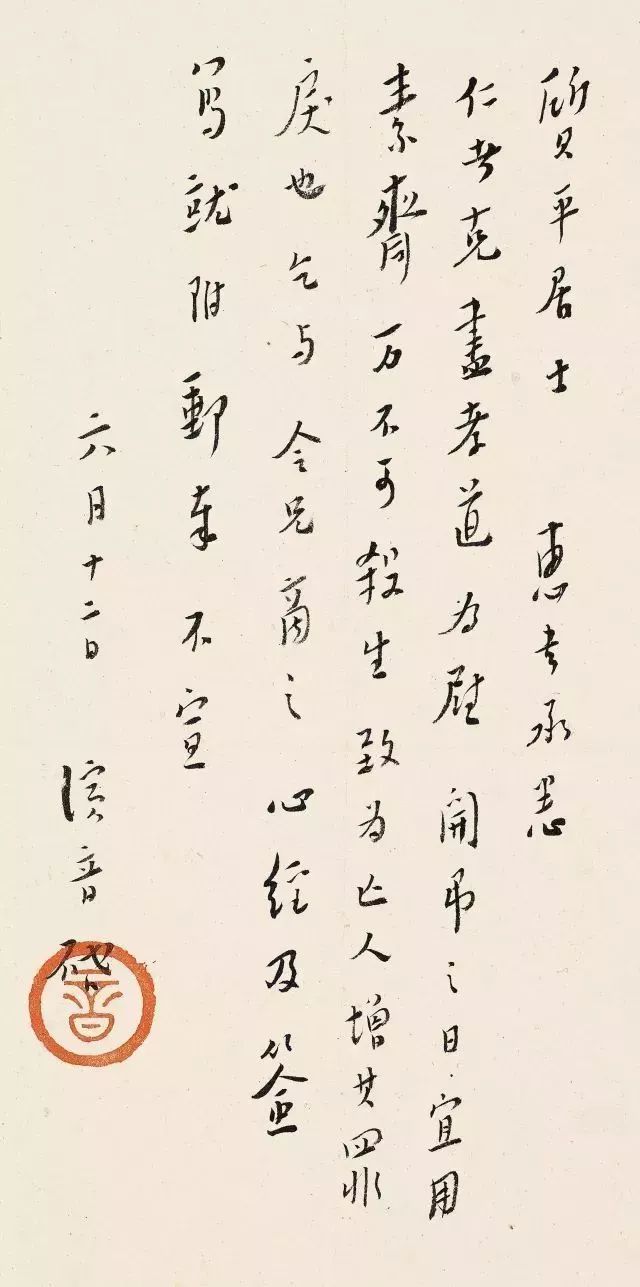 質平居士 惠書承悉
仁者克盡孝道為慰開弔之日宜用
素齋万不可殺生致為亡人增其罪
戾也乞与 令兄商之 心經及簽
寫就附郵奉不宣
六月十二日 演音啓